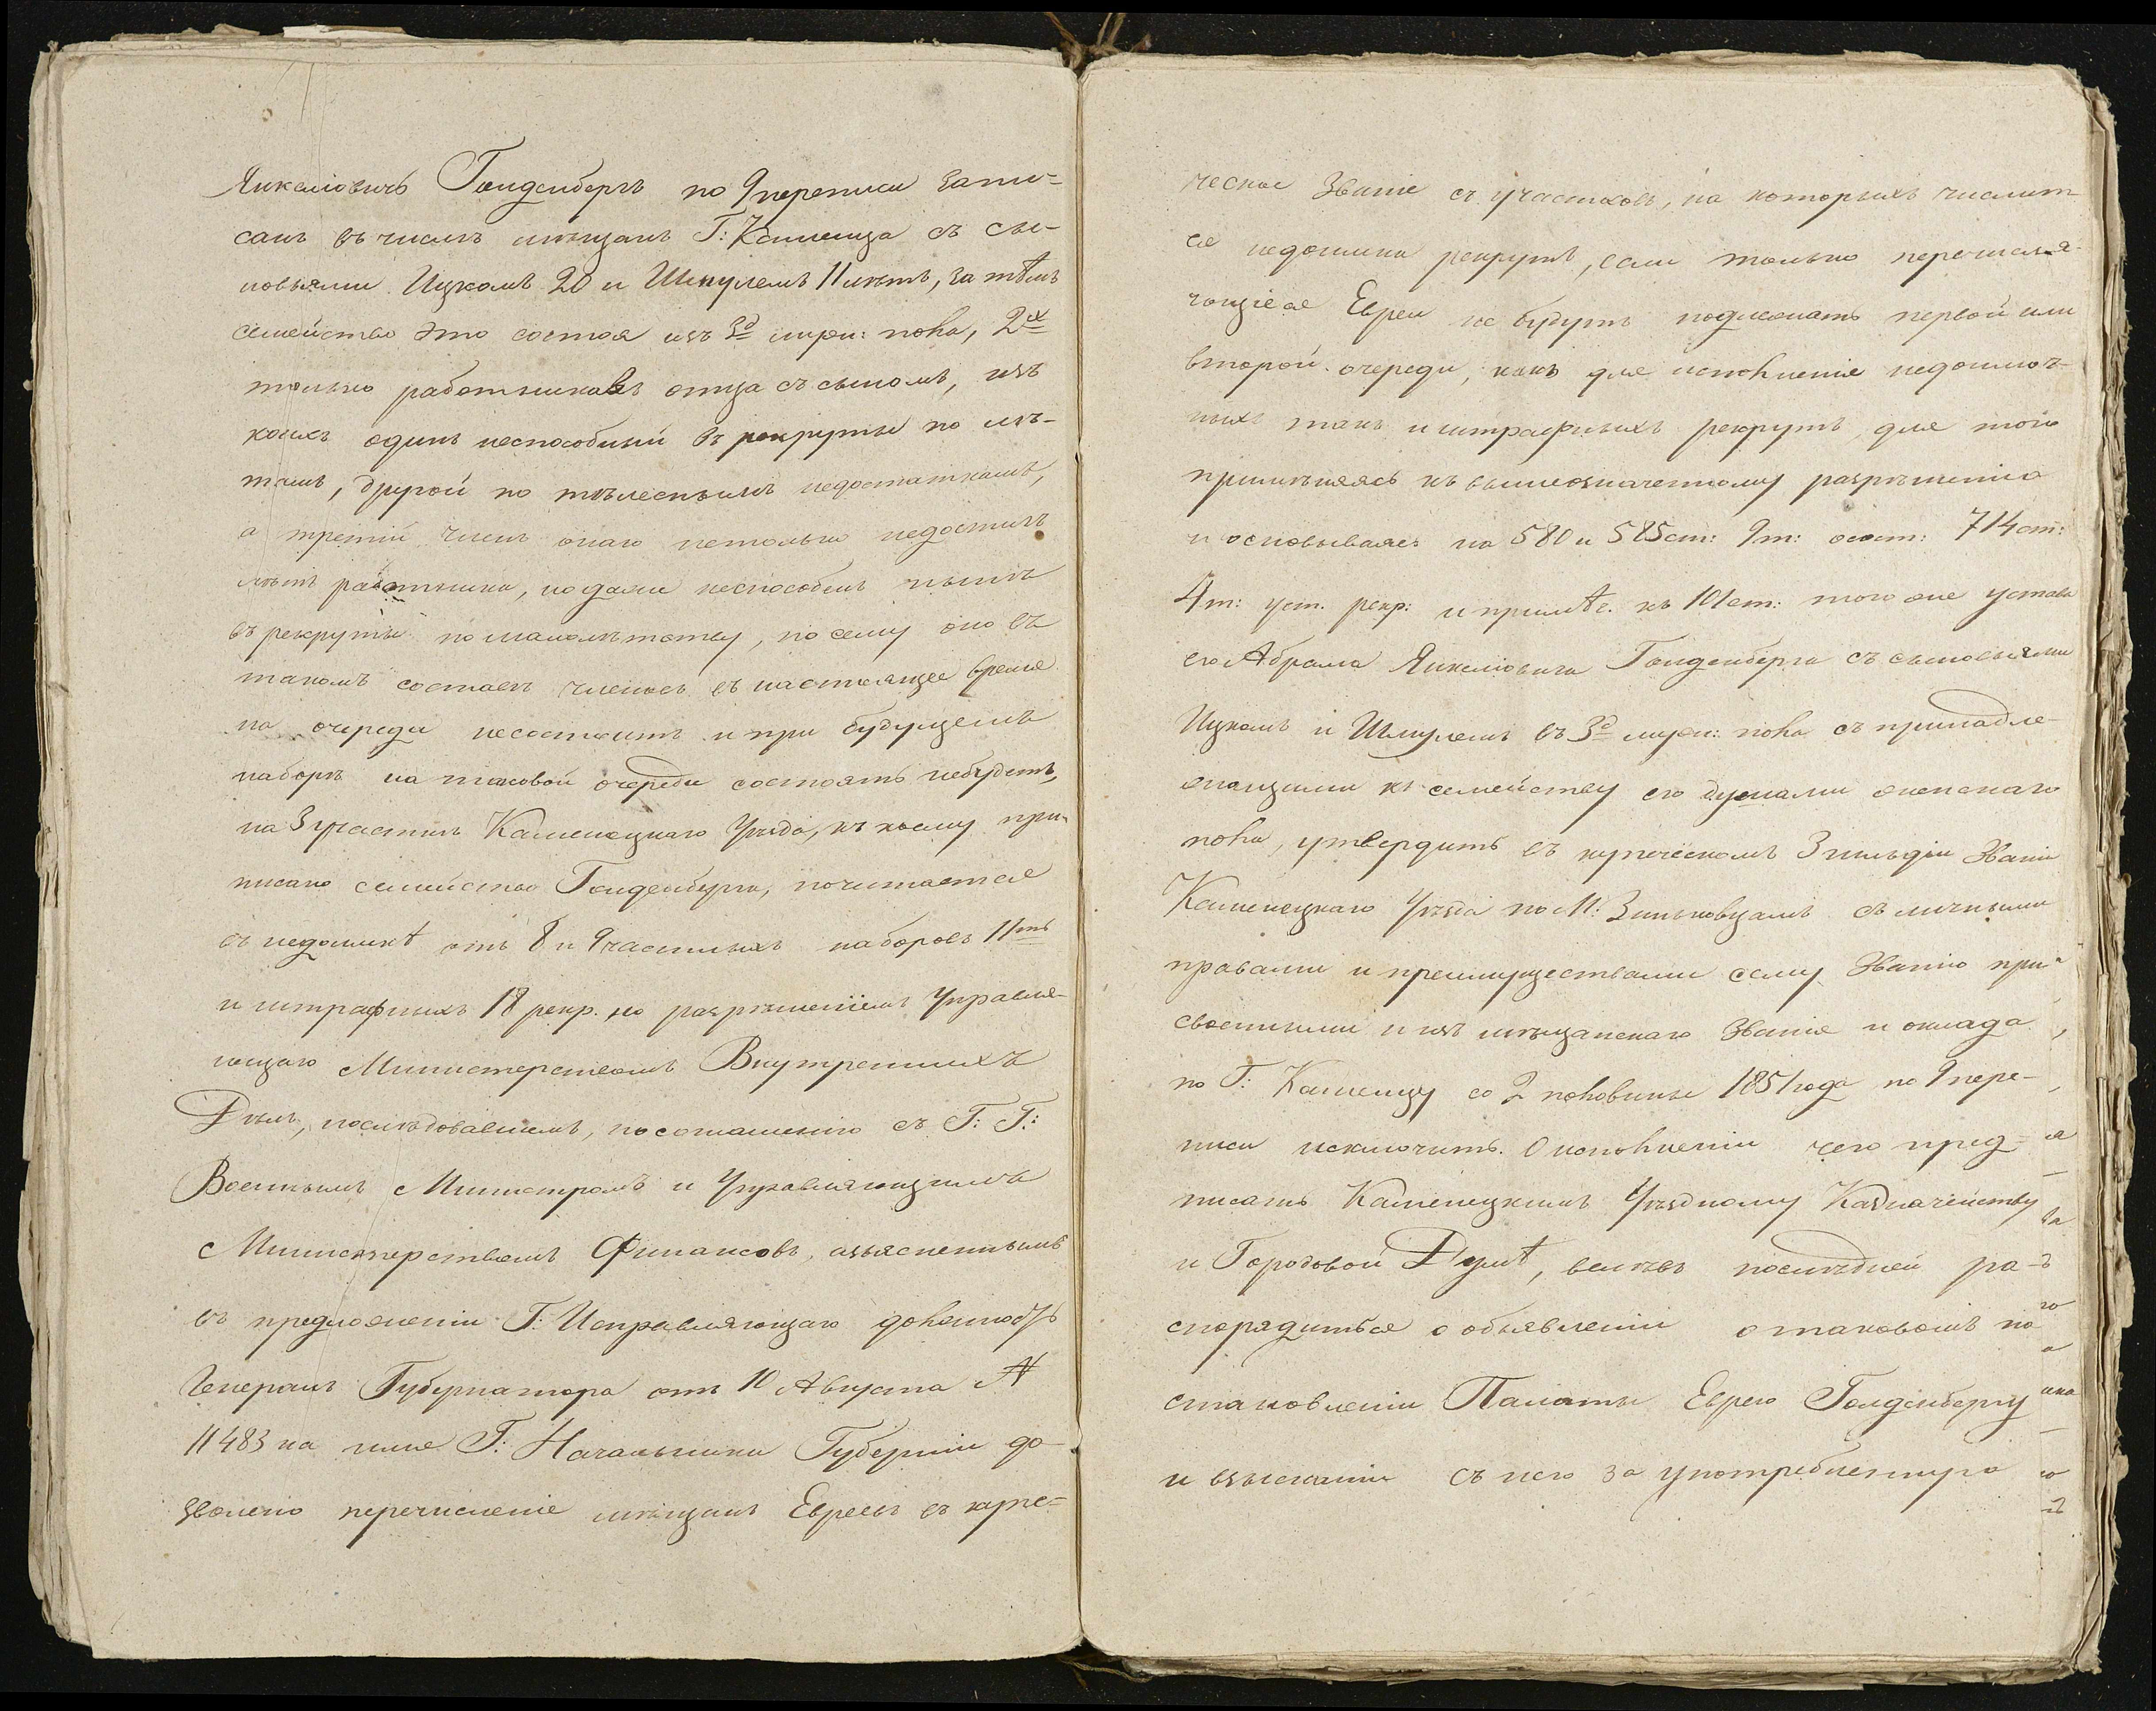 Янкеліовичъ Гольденбергъ по 9 переписи запи-
санъ въ числѣ мѣщанъ Г: Каменца съ сы-
новьями Ицкомъ 20 и Шмулемъ 11 лѣтъ, за тѣмъ
семейство это состоя изъ 3д муж: пола, 2хъ
только работниковъ отца съ сыномъ, изъ
коихъ одинъ неспособный въ рекруты по лѣ-
тамъ, другой по тѣлеснымъ недостаткамъ,
а третій членъ онаго нетолько недостигъ
лѣтъ работника, но даже неспособенъ нынѣ
въ рекруты по малолѣтству, по сему оно въ
такомъ составѣ членовъ въ настоящее время
на очереди несостоитъ и при будущемъ
наборѣ на таковой очереди состоять небудетъ,
на 3 участкѣ Каменецкаго Уѣзда, къ коему при-
писано семейство Гольденберга, почитается
въ недоимкѣ отъ 8 и 9 частныхъ наборовъ 11ть
и штрафныхъ 18 рекр. но разрѣшеніемъ Управля-
ющаго Министерствомъ Внутреннихъ
Дѣлъ, послѣдовавшемъ, по соглашенію съ Г: Г:
Военнымъ Министромъ и Управляющимъ
Министерствомъ Финансовъ, изъясненнымъ
въ предложеніи Г: Исправляющаго должность
Генералъ Губернатора отъ 10 Августа №
11483 на имя Г: Начальника Губерніи до-
зволено перечисленіе мѣщанъ Евреевъ въ купе-
ческое званіе съ участковъ, на которыхъ числит-
ся недоимка рекрутъ, если только перечисля-
ющіеся Евреи не будутъ подлежать первой или
второй очереди, какъ для исполненія недоимоч-
ныхъ такъ и штрафныхъ рекрутъ, для того
примѣняясь къ вышеозначенному разрѣшенію
и основываясь на 580 и 585 ст: 9 т: 714 ст:
4 т: уст. рекр: и примѣч. къ 101 ст: того же устава
его Абрама Янкеліовича Гольденберга съ сыновьями
Ицкомъ и Шмулемъ въ 3д муж: пола съ принадле-
жащими къ семейству его душами женскаго
пола, утвердить въ купеческомъ 3 гильдіи Званіи
Каменецкаго Уѣзда по М: Зиньковцамъ съ личными
правами и преимуществами сему Званію при-
своенными и изъ мѣщанскаго Званія и оклада
по Г: Каменцу со 2 половины 1851 года по 9 пере-
писи исключить. О исполненіи чего пред-
писать Каменецкимъ Уѣздному Казначейству
и Городовой Думѣ, велѣвъ послѣдней ра-
спорядиться о объявленіи о таковомъ по
становленіи Палаты Еврею Голденбергу
и взысканіи съ него за употребленную